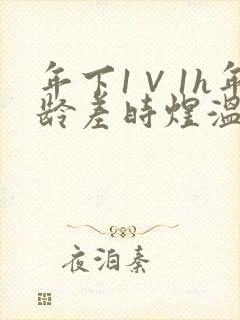 年下1V1h年
龄差時煜温
夜泊秦